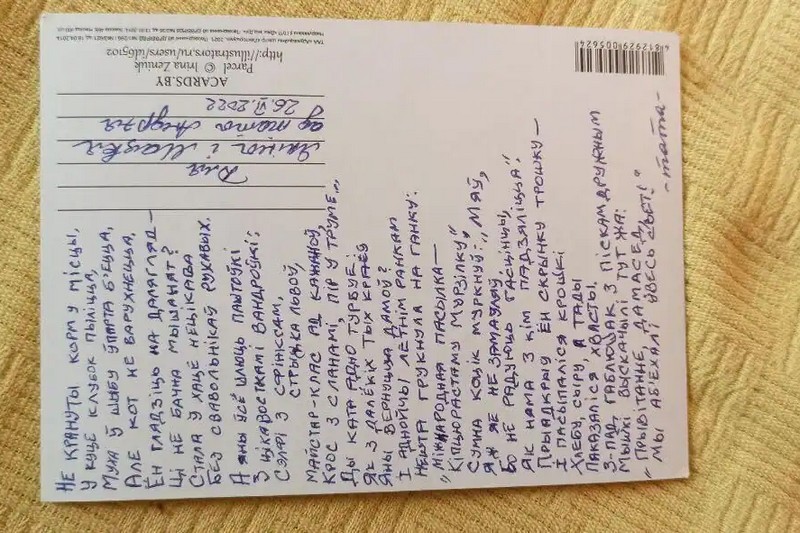 НЕ КРАНУТЫ КОРМ У МІСЦЫ,
У КУЦЕ КЛУБОК ПЫЛІЦЦА,
МУХА Ў ШЫБУ ЎПАРТА Б'ЕЦЦА,
АЛЕ КОТ НЕ ВАРУХНЕЦЦА.
ЁН ГЛЯДЗІЦЬ НА ДАЛЯГЛЯД —
ЦІ НЕ БАЧНА МЫШАНЯТ?
СТАЛА Ў ХАЦЕ НЕЦІКАВА
БЕЗ СВАВОЛЬНІКАЎ РУХАВЫХ.
А ЯНЫ ЎСЁ ШЛЮЦЬ ПАШТОЎКІ
З ЦІКАВОСТКАМІ ВАНДРОЎКІ:
СЭЛФІ З СФІНКСАМ,
СТРЫЖКА ЛЬВОЎ,
МАЙСТАР-КЛАС АД КАЖАНОЎ,
КРОС З СЛАНАМІ, ПІР У ТРУМЕ...
ДЫ КАТА АДНО ТУРБУЕ:
ЯК З ДАЛЁКІХ ТЫХ КРАЁЎ
ЯНЫ ВЕРНУЦЦА ДАМОЎ?
І АДНОЙЧЫ ЛЕТНІМ РАНКАМ
НЕШТА ГРУКНУЛА НА ГАНКУ:
„МІЖНАРОДНАЯ ПАСЫЛКА —
КІПЦЮРАСТАМУ МУРЗІЛКУ”
СУМНА КОЦІК МУРКНУЎ: „МЯЎ,
ЯЖ ЯЕ НЕ ЗАМАЎЛЯЎ,
БО НЕ РАДУЮЦЬ ГАСЦІНЦЫ,
ЯК НЯМА З КІМ ПАДЗЯЛІЦЦА”.
ПРЫАДКРЫЎ ЁН СКРЫНКУ ТРОШКУ —
І ПАСЫПАЛІСЯ КРОШКІ
ХЛЕБУ, СЫРУ, А ТАДЫ
ПАКАЗАЛІСЯ ХВАСТЫ,
З-ПАД ГАБЛЮШАК З ПІСКАМ ДРУЖНЫМ
МЫШКІ ВЫСКАЧЫЛІ ТУТ ЖА:
„ПРЫВІТАННЕ, ДАМАСЕД,
МЫ АБ'ЕХАЛІ ЎВЕСЬ СВЕТ!”
-тата-
Для
Яніны і Мацвея
ад таты Андрэя
26.VI.2022
ACARDS.BY
Parcel © Irina Zeniuk
http://illustrators.ru/users/id65102
4812929005624